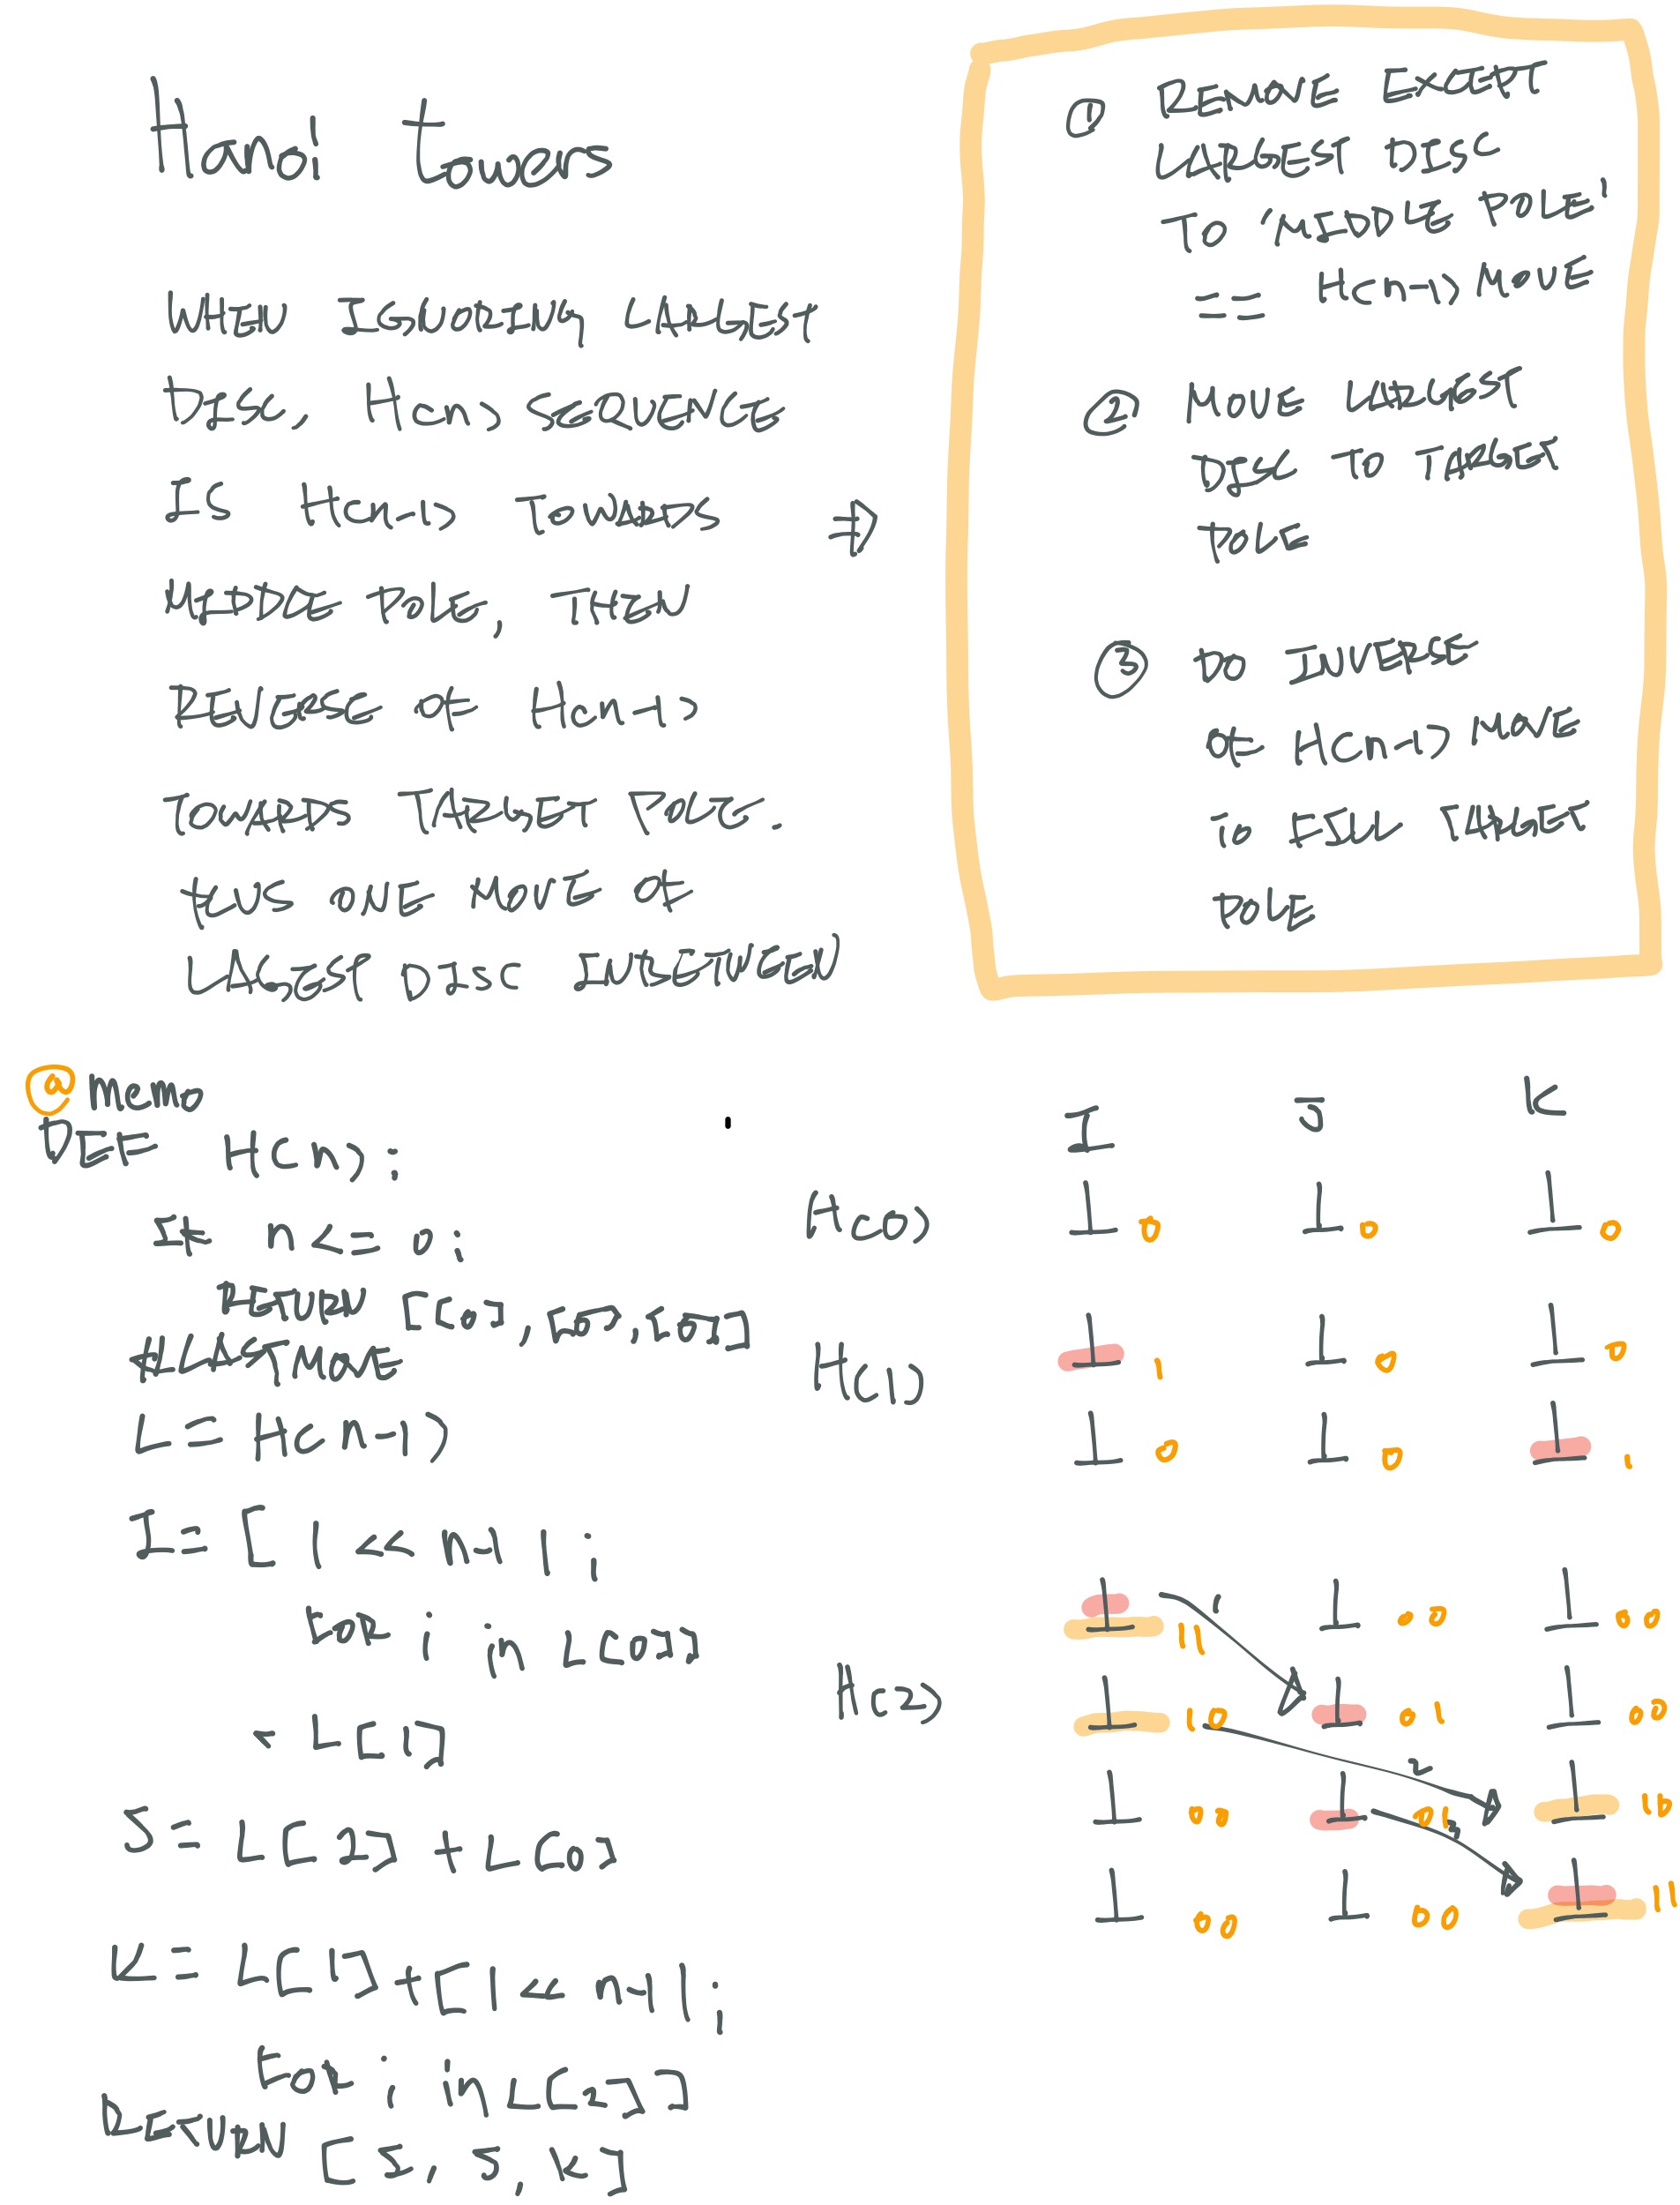 Hanoi towers
WHEN IGNORING LARGEST
DISC, H(n) SEQUENCE
IS H(n-1) TOWARDS ⇒
MIDDLE POLE, THEN
REVERSE OF H(n-1)
TOWARDS TARGET POLE.
PLUS ONE MOVE OF
LARGEST DISC INBETWEEN
① REMOVE EXCEPT
LARGEST DISC
TO 'MIDDLE POLE'
== H(n-1) MOVE
② MOVE LARGEST
DISC TO TARGET
POLE
③ DO INVERSE
OF H(n-1) MOVE
TO FILL TARGET
POLE
@memo
DEF H(n):
IF n <= 0:
RETURN [[0],[0],[0]]
#LAST MOVE
L = H(n-1)
I = [1 << n-1 | i
FOR i in L[0]]
+ L[1]
J = L[2] + L[0]
K = L[1] + [1 << n-1 | i
FOR i in L[2]]
RETURN [I, J, K]
I J K
H(0) 0 0 0
H(1) 1 0 0
0 0 1
1
11 00 00
H(2) 10 01 00
2
00 01 10
3
00 00 11